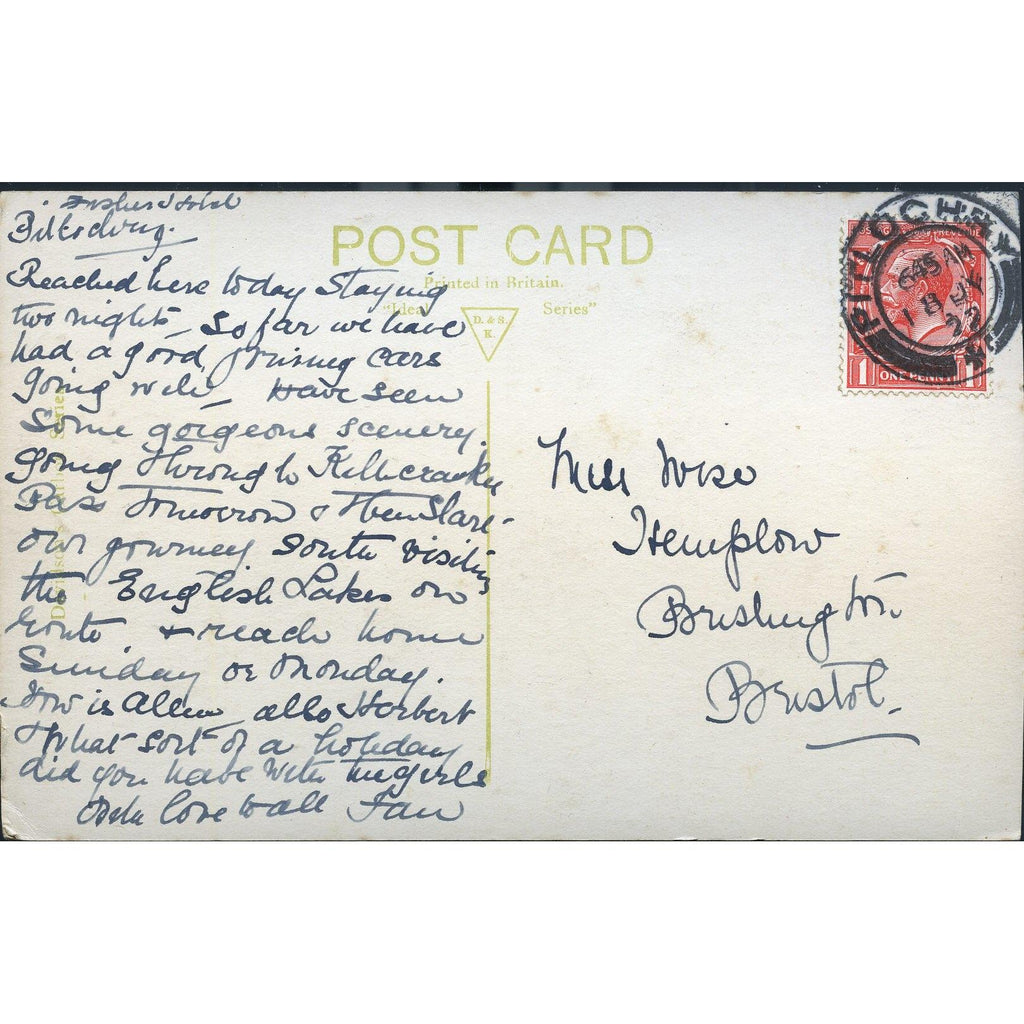 Fishers Hotel
Pitlochry.
Reached here today Staying
two nights So far we have
had a good cars
going well Have seen
Some gorgeous scenery.
going through Killicrankie
Pass Tomorrow & Then Start
our journey South visiting
the English Lakes on
route & reach home
Sunday or Monday.
How is also Herbert
What sort of a holiday
did you have with the girls
With love to all Fan
POST CARD
Printed in Britain.
"Ideal Series"
D. & S.
K.
Series
PITLOCHRY
645 AM
18 JY
22
ONE PENNY
1 1
Miss Wise
Hemplow
Brislington
Bristol.